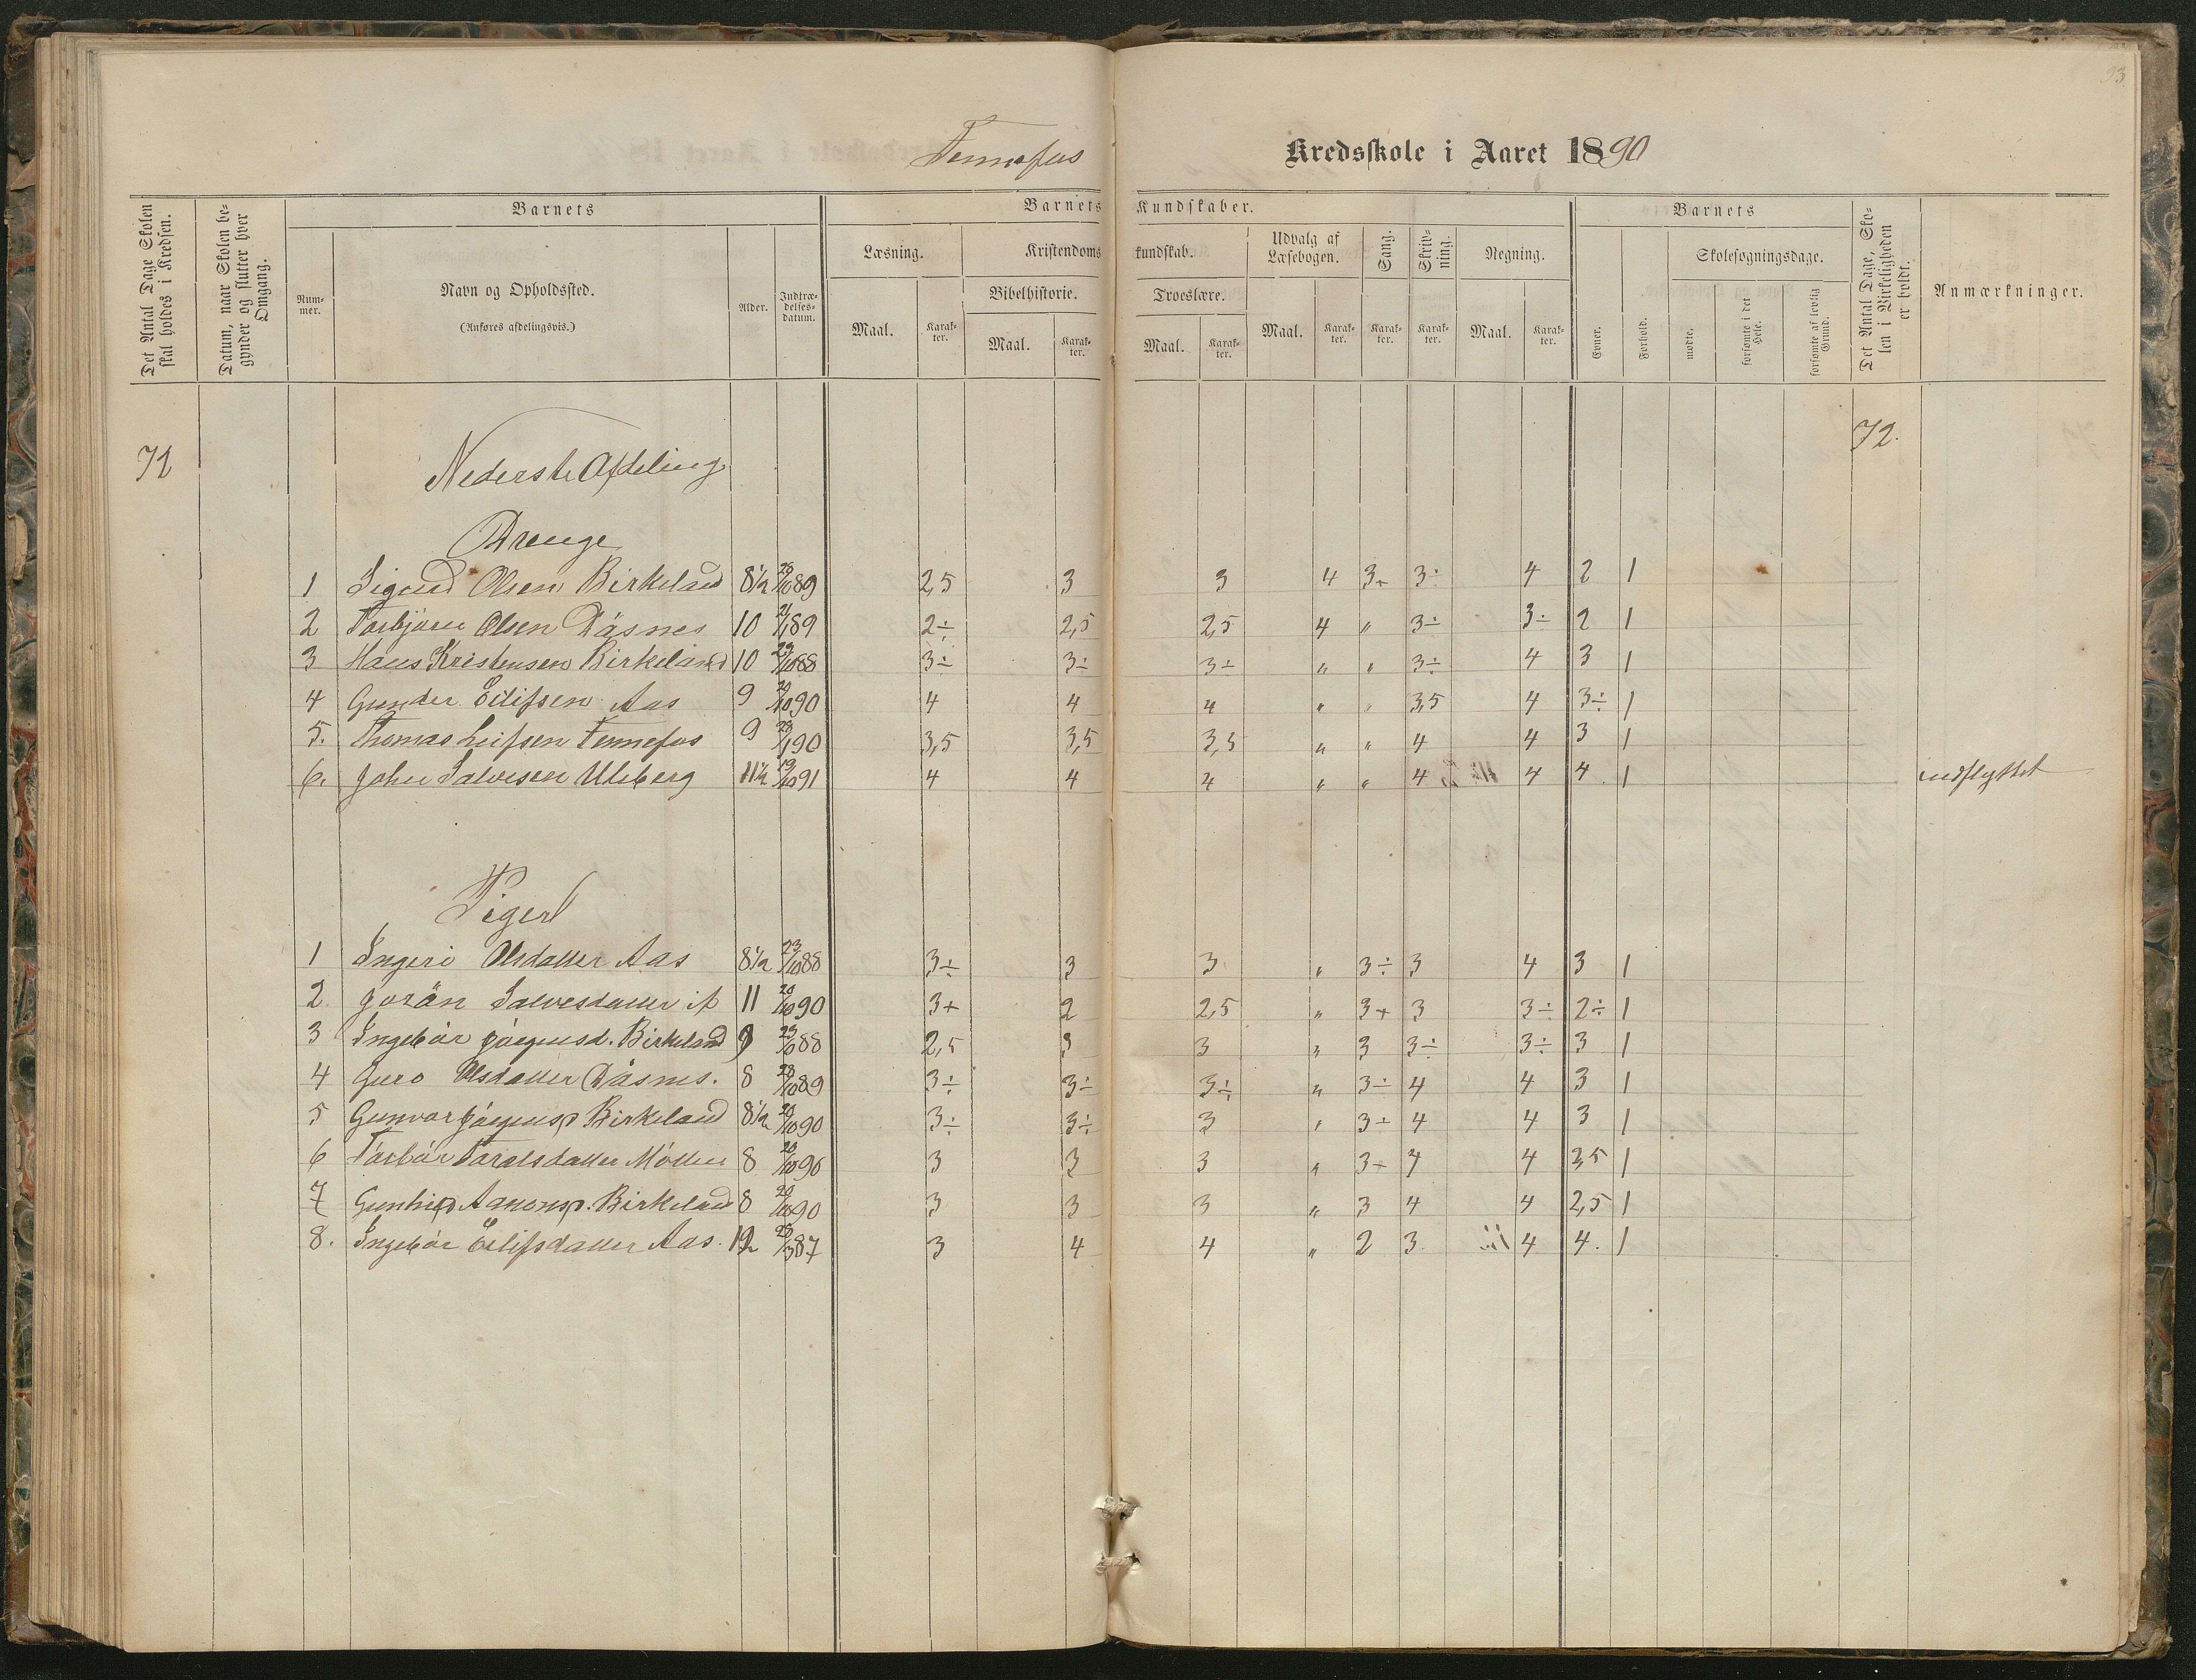 33
Tennefos Kredsskole i Aaret 1890
Det Antal Dage Skolen skal holdes i Kredsen.
Datum, naar Skolen begynder og slutter hver Omgang.
Barnets
Nummer.
Navn og Opholdssted.
(Anføres afdelingsvis.)
Alder.
Indtrædelsesdatum.
Barnets Kundskaber.
Læsning.
Maal. Karakter.
Kristendomskundskab.
Bibelhistorie.
Maal. Karakter.
Troeslære.
Maal. Karakter.
Udvalg af Læsebogen.
Maal. Karakter.
Sang.
Karakter.
Skrivning.
Karakter.
Regning.
Maal. Karakter.
Barnets
Evner.
Forhold.
Skolesøgningsdage.
mødte.
forsømte i det Hele.
forsømte af lovlig Grund.
Det Antal Dage, Skolen i Virkeligheden er holdt.
Anmærkninger.
72 72.
Nederste Afdeling
Drenge
1 Sigurd Olsen Birkeland 8 1/2 28/10 89 2,5 3 3 4 3+ 3÷ 4 2 1
2 Torbjørn Olsen Dåsnes 10 21/1 89 2÷ 2,5 2,5 4 " 3÷ 3÷ 2 1
3 Hans Kristensen Birkeland 10 23/10 88 3÷ 3÷ 3÷ " " 3÷ 4 3 1
4 Gunder Eilifsen Aas 9 20/10 90 4 4 4 " " 3,5 4 3÷ 1
5. Thomas Leifsen Tennefos 9 23/1 90 3,5 3,5 3,5 " " 4 4 3 1
6. John Salvesen Uleberg 11 1/2 19/10 91 4 4 4 " " 4 4 4. 1 indflyttet
Piger
1 Ingeri Olsdatter Aas 8 1/2 23/10 88 3÷ 3 3 " 3÷ 3 4 3 1
2. Jorån Salvesdatter ib 11 20/10 90 3+ 2 2,5 " 3+ 3 3÷ 2÷ 1
3 Ingebår Jörgensd. Birkeland 9 23/10 88 2,5 3 3 " 3 3÷ 3÷ 3 1
4 Guro Olsdatter Dåsnes. 8 28/10 89 3÷ 3÷ 3÷ " 3÷ 4 4 3 1
5 Gunvor Jörgensd Birkeland 8 1/2 20/10 90 3÷ 3÷ 3 " 3÷ 4 4 3 1
6 Torbår Taralsdatter Möllen 8 20/10 90 3 3 3 " 3÷ 4 4 3,5 1
7 Gunhild Aanonsd. Birkeland 8 20/10 90 3 3 3 " 3 4 4 2,5 1
8. Ingebår Eilifsdatter Aas. 12 28/3 87 3 4 4 " 2 3 4 4. 1